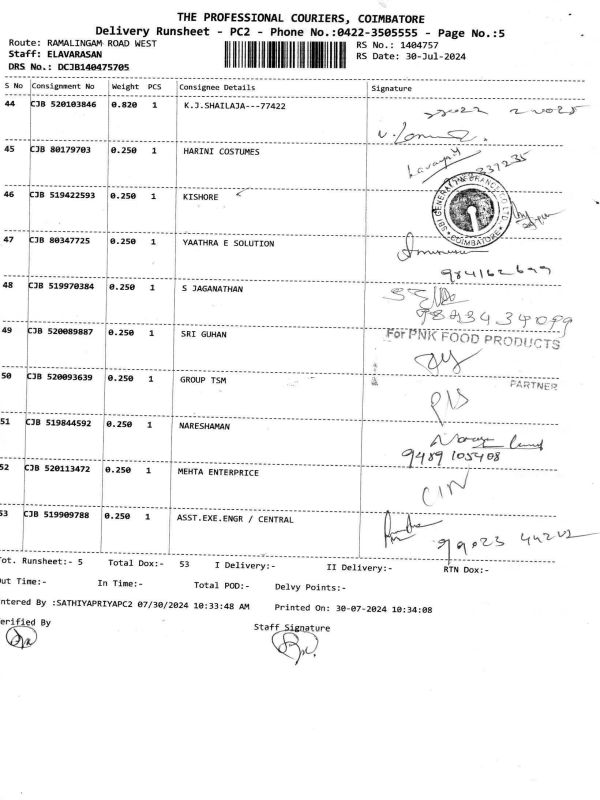 THE PROFESSIONAL COURIERS, COIMBATORE
Delivery Runsheet - PC2 - Phone No.:0422-3505555 - Page No.:5
Route: RAMALINGAM ROAD WEST
RS No.: 1404757
Staff: ELAVARASAN
RS Date: 30-Jul-2024
DRS No.: DCJB140475705
S No Consignment No Weight PCS Consignee Details Signature
44 CJB 520103846 0.820 1 K.J.SHAILAJA---77422
45 CJB 80179703 0.250 1 HARINI COSTUMES
337235
46 CJB 519422593 0.250 1 KISHORE
SBI GENERAL INSURANCE CO LTD
COIMBATORE
47 CJB 80347725 0.250 1 YAATHRA E SOLUTION
48 CJB 519970384 0.250 1 S JAGANATHAN
49 CJB 520089887 0.250 1 SRI GUHAN
For PNK FOOD PRODUCTS
50 CJB 520093639 0.250 1 GROUP TSM
PARTNER
51 CJB 519844592 0.250 1 NARESHAMAN
9489105408
52 CJB 520113472 0.250 1 MEHTA ENTERPRICE
53 CJB 519909788 0.250 1 ASST.EXE.ENGR / CENTRAL
ot. Runsheet:- 5 Total Dox:- 53 I Delivery:- II Delivery:- RTN Dox:-
ut Time:- In Time:- Total POD:- Delvy Points:-
ntered By :SATHIYAPRIYAPC2 07/30/2024 10:33:48 AM Printed On: 30-07-2024 10:34:08
erified By
Staff Signature